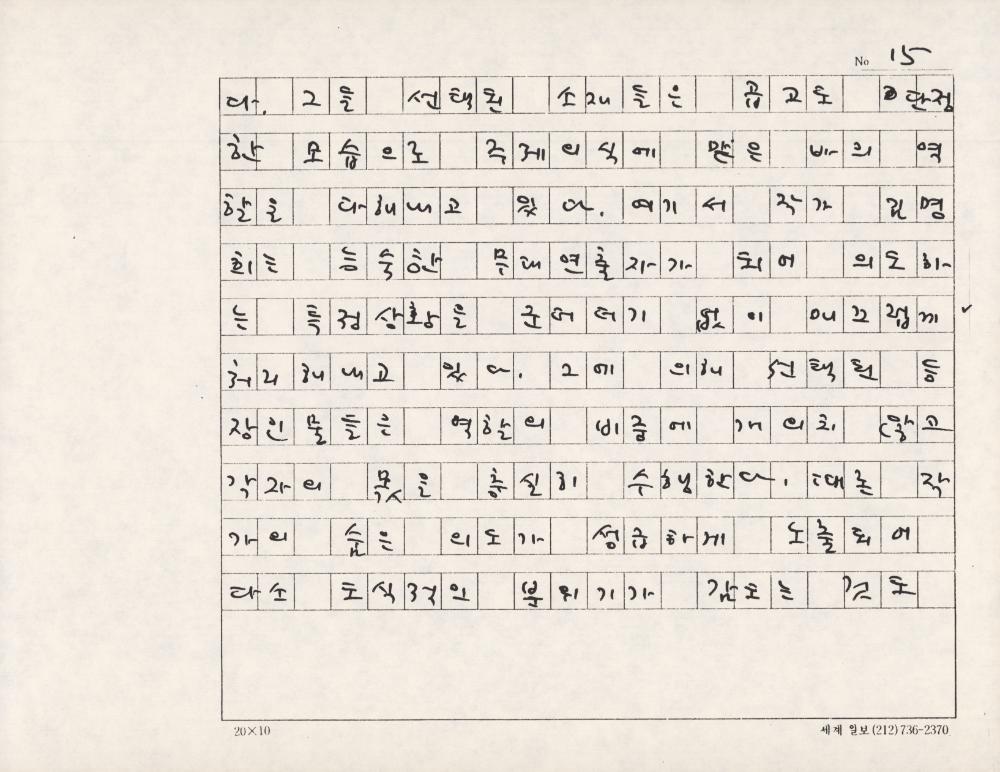 No 15
다. 그를 선택된 소재들은 곱고도 단정
한 모습으로 주제의식에 맞은 바의 역
할을 다해내고 있다. 여기서 작가 김명
희는 능숙한 무대연출자가 되어 의도하
는 특정상황을 군더더기 없이 매끄럽게
처리해내고 있다. 그에 의해 선택된 등
장인물들은 역할의 비중에 개의치 않고
각자의 몫을 충실히 수행한다. 때론 작
가의 숨은 의도가 성급하게 노출되어
다소 도식적인 분위기가 감도는 것도
20×10
세계 일보 (212) 736-2370